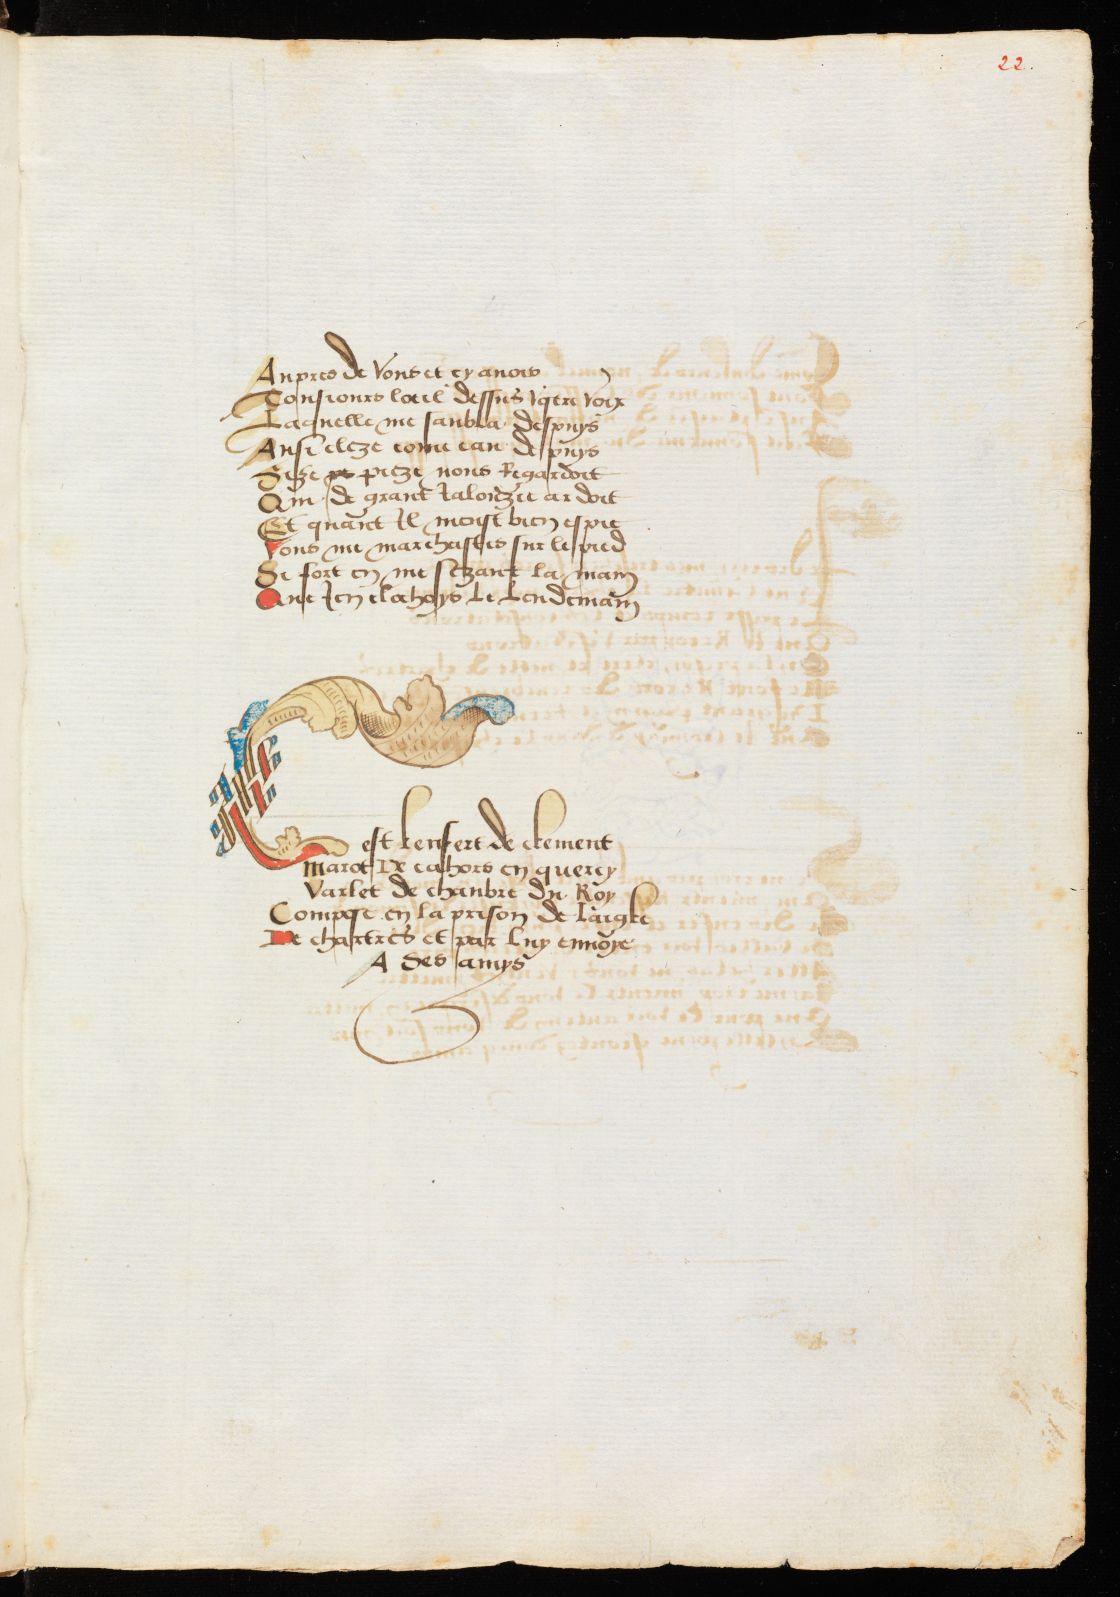 22.
Aupres de vous et cy auois
Tousiours loeil dessus vostre voix
Laquelle me sanbla despuys
Ausi clere come eau de puys
Seze pieze nous Regardoit
Qui de grant Jalouzie ardoit
Et quant Il meust bien espie
Vous me marchastes sur le pied
Se fort en me sezant la main
Que Jen clochoys Le Lendemain
C est lenfert de clement
marot De cahors en quercy
varlet de chanbre du Roy
Compose en la prison de Laigle
De chartres et par luy ennoye
A Ses amys